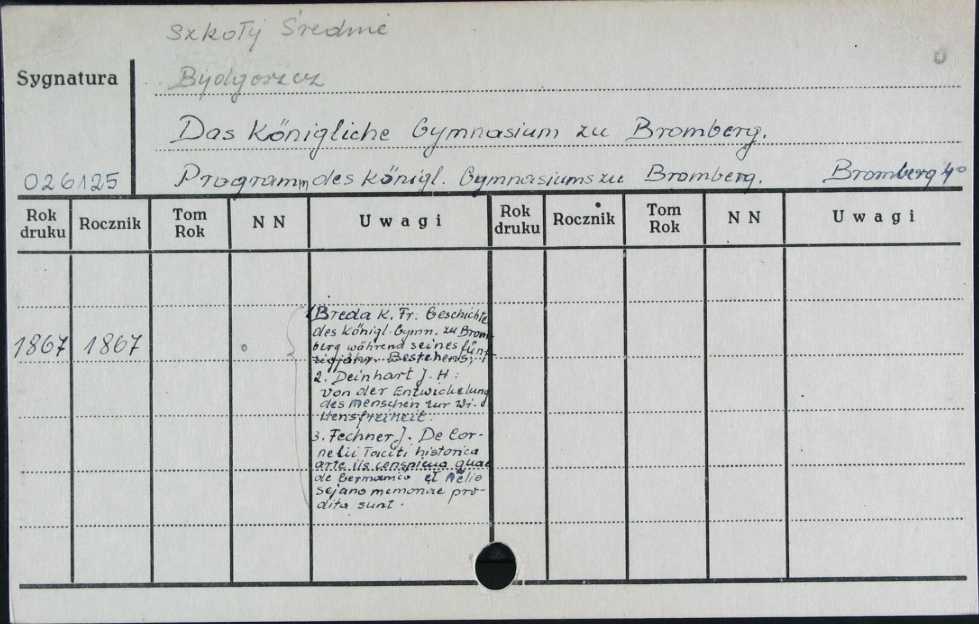 Szkoły Średnie
Sygnatura
Bydgoszcz
Das Königliche Gymnasium zu Bromberg.
026125
Programm des königl. Gymnasiums zu Bromberg. Bromberg 4°
Rok druku Rocznik Tom Rok N N Uwagi Rok druku Rocznik Tom Rok N N Uwagi
1867 1867
1. Breda K. Fr. Geschichte
des Königl. Gymn. zu Brom-
berg während seines fünf-
zigjähr. Bestehens;
2. Deinhart J. H:
von der Entwickelung
des Menschen zur Wi-
llensfreiheit.
3. Fechner J. De Cor-
nelii Taciti historica
arte iis conspicua quae
de Germanico et Aelio
Sejano memoriae pro-
dita sunt.